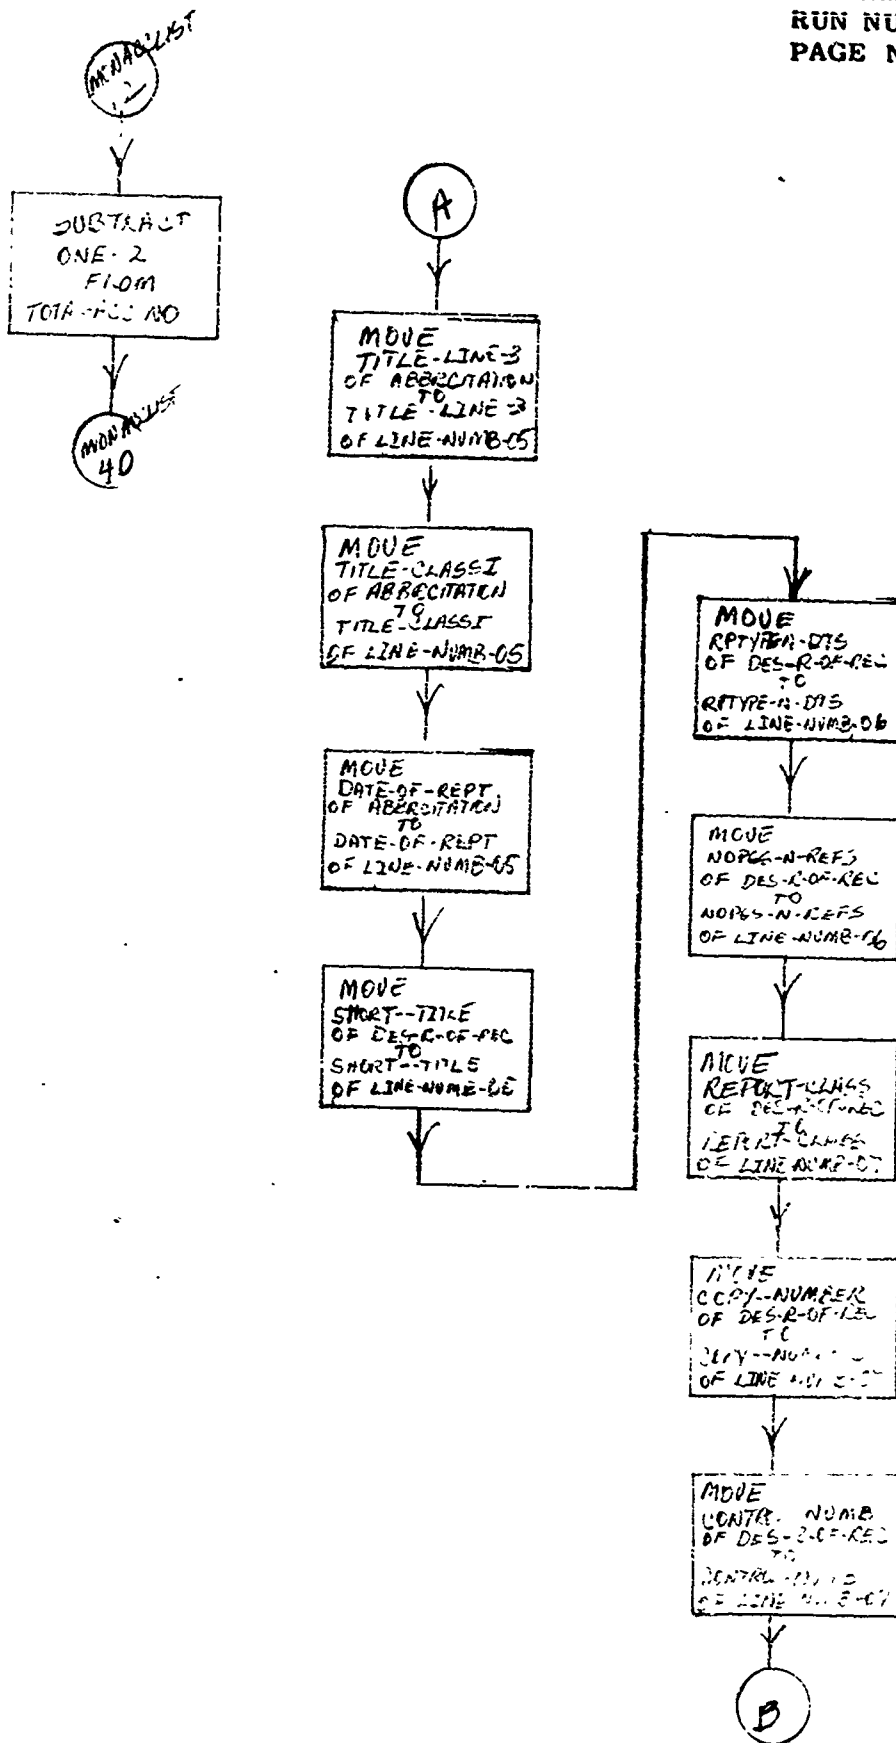 RUN NU
PAGE N
SUBTRACT
ONE-2
FROM
NO
MONAQLIST
40
A
MOVE
TITLE-LINE-3
OF ABBRCITATION
TO
TITLE-LINE-3
OF LINE-NUMB-05
MOVE
TITLE-CLASSI
OF ABBRCITATION
TO
TITLE-CLASSI
OF LINE-NUMB-05
MOVE
DATE-OF-REPT
OF ABBRCITATION
TO
DATE-OF-REPT
OF LINE-NUMB-05
MOVE
SHORT--TITLE
OF DES-R-OF-REC
TO
SHORT--TITLE
OF LINE-NUMB-06
MOVE
OF DES-R-OF-REC
TO
RPTYPE-N-DTS
OF LINE-NUMB-06
MOVE
NOPGS-N-REFS
OF DES-R-OF-REC
TO
NOPGS-N-REFS
OF LINE-NUMB-06
MOVE
REPORT-CLASS
OF DES-R-OF-REC
TO
REPORT-CLASS
OF LINE-NUMB-07
MOVE
COPY--NUMBER
OF DES-R-OF-REC
TO
OF LINE
MOVE
NUMB
OF DES-R-OF-REC
TO
OF LINE
B